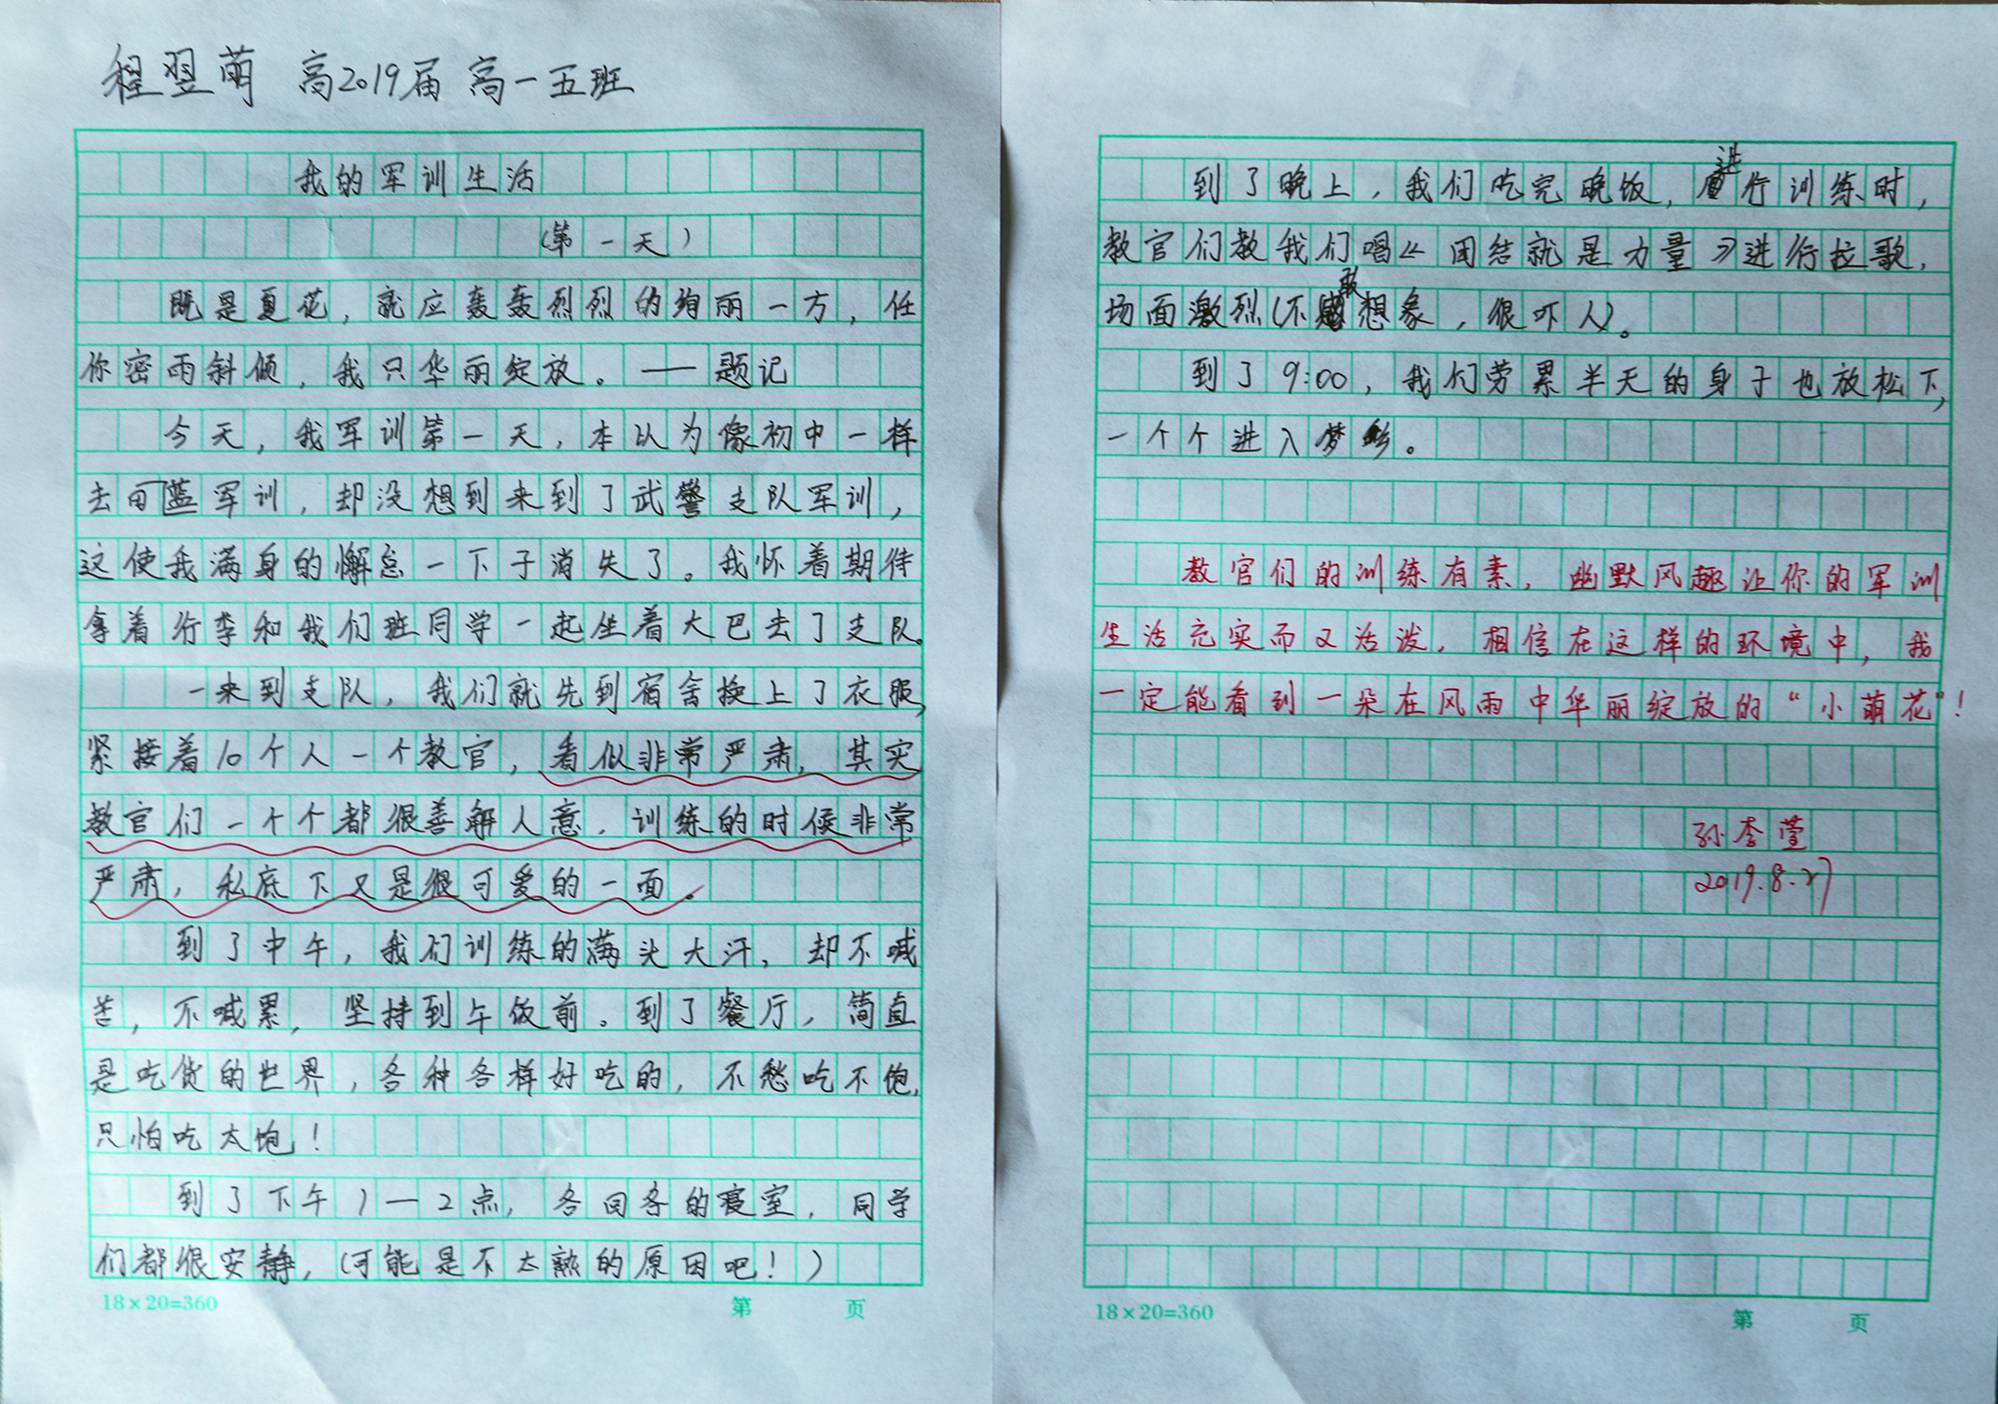 程翌萌 高2019届 高一五班
我的军训生活
(第一天)
既是夏花，就应轰轰烈烈的绚丽一方，任
你密雨斜倾，我只华丽绽放。——题记
今天，我军训第一天，本以为像初中一样
去田蓝军训，却没想到来到了武警支队军训，
这使我满身的懈怠一下子消失了。我怀着期待
拿着行李和我们班同学一起坐着大巴去了支队。
一来到支队，我们就先到宿舍换上了衣服，
紧接着10个人一个教官，看似非常严肃，其实
教官们一个个都很善解人意，训练的时候非常
严肃，私底下又是很可爱的一面。
到了中午，我们训练的满头大汗，却不喊
苦，不喊累，坚持到午饭前。到了餐厅，简直
是吃货的世界，各种各样好吃的，不愁吃不饱，
只怕吃太饱！
到了下午1—2点，各回各的寝室，同学
们都很安静，(可能是不太熟的原因吧！)
18×20=360
第 页
到了晚上，我们吃完晚饭，进行训练时，
教官们教我们唱《团结就是力量》进行拉歌，
场面激烈(不敢想象，很吓人)。
到了9:00，我们劳累半天的身子也放松下，
一个个进入梦乡。
教官们的训练有素，幽默风趣让你的军训
生活充实而又活泼，相信在这样的环境中，我
一定能看到一朵在风雨中华丽绽放的“小萌花”！
孙李莹
2019.8.27
18×20=360
第 页